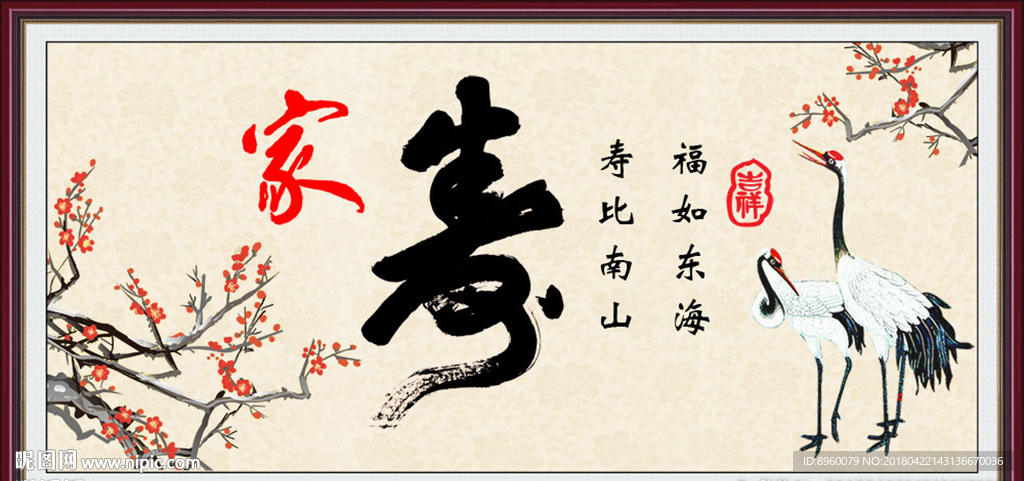 福如东海
寿比南山
吉祥
寿
家
昵图网 www.nipic.com
ID:8960079 NO:20180422143136670036